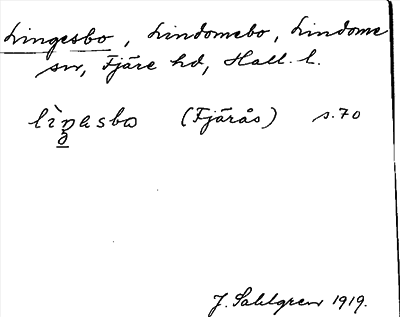 Lingesbo, Lindomebo, Lindome
sn, Fjäre hd, Hall. l.
lìŋasbo (Fjärås) s. 70
J. Sahlgren 1919.